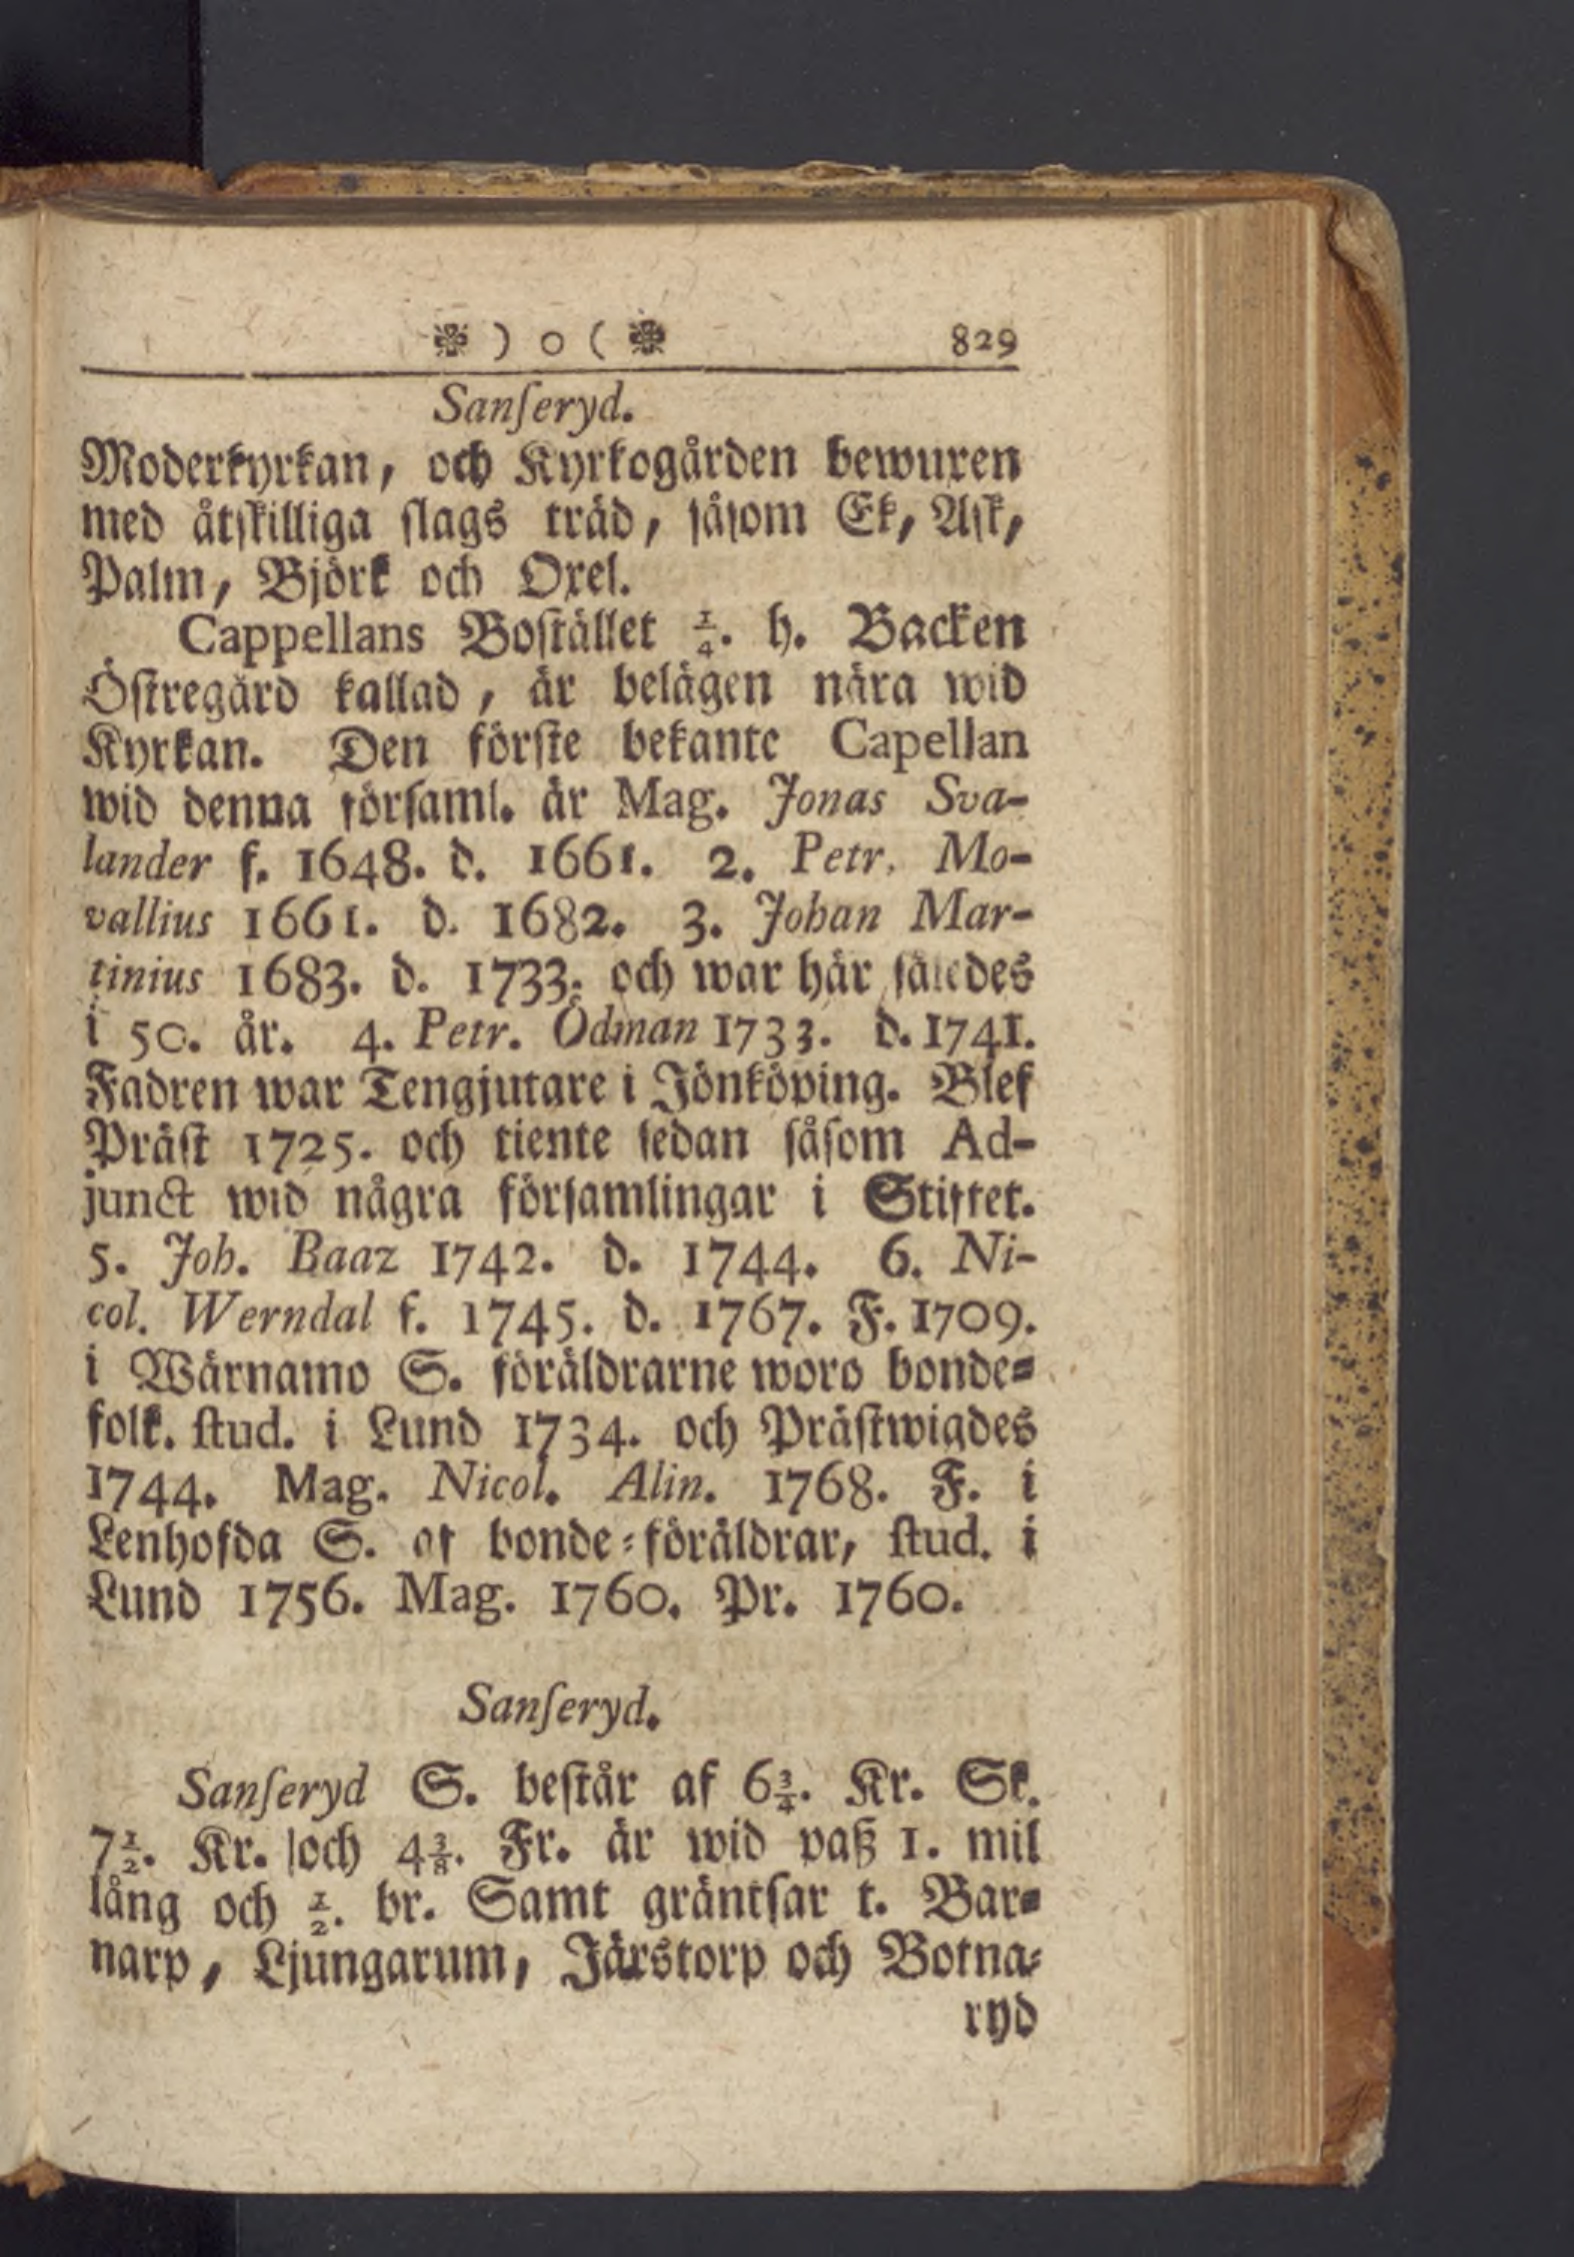 ❉ ) o ( ❉ 829
Sanſeryd.
Moderkyrkan, och Kyrkogården bewuren
med åtſkilliga ſlags träd, ſåſom Ek, Aſk,
Palm, Björk och Oxel.
Cappellans Boſtället ¼. h. Backen
Öſtregård kallad, är belägen nära wid
Kyrkan. Den förſte bekante Capellan
wid denna förſaml. är Mag. Jonas Sva-
lander f. 1648. d. 1661. 2. Petr. Mo-
vallius 1661. d. 1682. 3. Johan Mar-
tinius 1683. d. 1733. och war här ſåledes
i 50. år. 4. Petr. Ödman 1733. d. 1741.
Fadren war Tengjutare i Jönköping. Blef
Präſt 1725. och tiente ſedan ſåſom Ad-
junct wid några förſamlingar i Stiftet.
5. Joh. Baaz 1742. d. 1744. 6. Ni-
col. Werndal f. 1745. d. 1767. F. 1709.
i Wärnamo S. föräldrarne woro bonde-
folk. ſtud. i Lund 1734. och Präſtwigdes
1744. Mag. Nicol. Alin. 1768. F. i
Lenhofda S. af bonde-föräldrar, ſtud. i
Lund 1756. Mag. 1760. Pr. 1760.
Sanſeryd.
Sanſeryd S. beſtår af 6¾. Kr. Sk.
7½. Kr. och 4⅜. Fr. är wid paß 1. mil
lång och ½. br. Samt gräntſar t. Bar-
narp, Ljungarum, Järstorp och Botna-
ryd